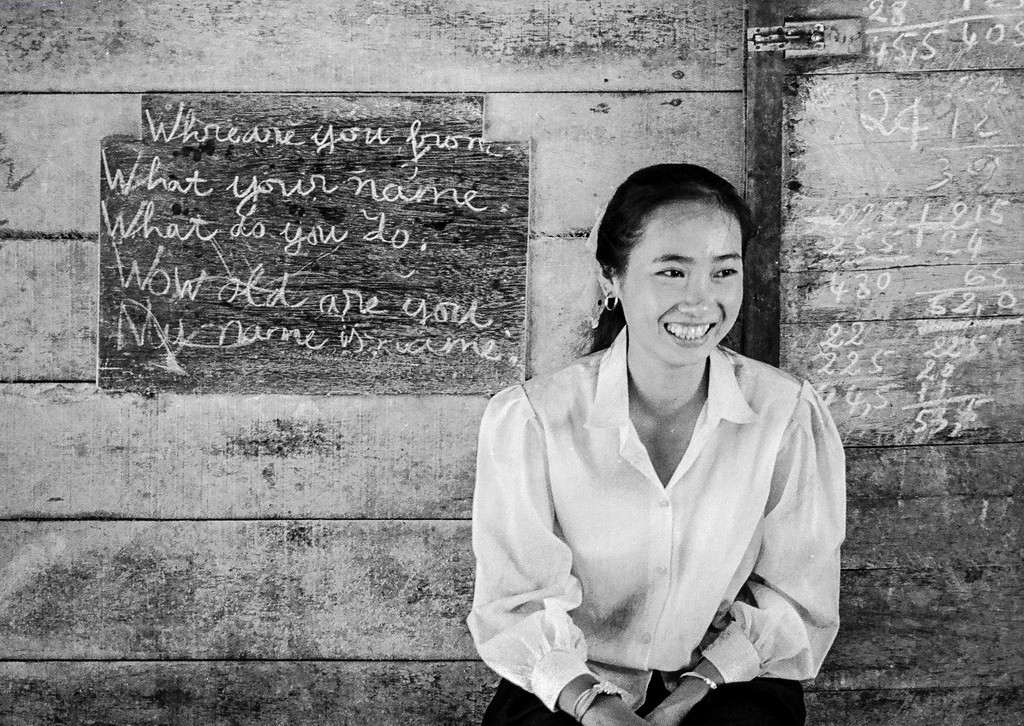 Where are you from.
What your name.
What do you do.
Wow old are you.
My name is name.
28
45,5 405
24 12
39
225 +215
255 24
480 65
52,0
22 225
225 20
555